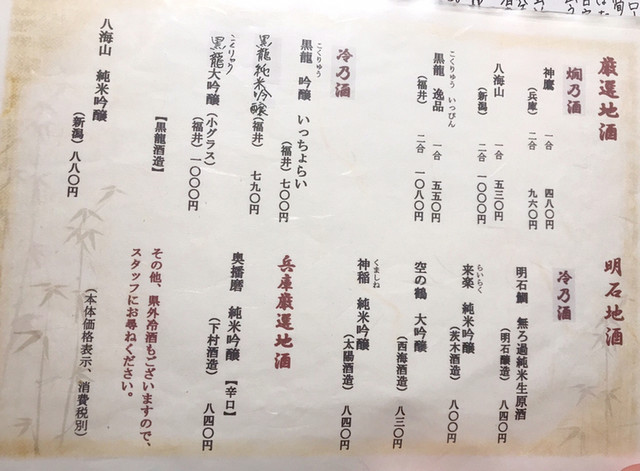 厳選地酒
燗乃酒
神鷹 一合 四八〇円
（兵庫） 二合 九六〇円
八海山 一合 五三〇円
（新潟） 二合 一〇〇〇円
こくりゅう いっぴん
黒龍 逸品 一合 五五〇円
（福井） 二合 一〇八〇円
冷乃酒
こくりゅう
黒龍 吟醸 いっちょらい
（福井） 七〇〇円
黒龍純米吟醸
（福井） 七九〇円
こくりゅう
黒龍大吟醸（小グラス）
（福井） 一〇〇〇円
【黒龍酒造】
八海山 純米吟醸
（新潟） 八八〇円
明石地酒
冷乃酒
明石鯛 無ろ過純米生原酒
（明石醸造） 八四〇円
らいらく
来楽 純米吟醸
（茨木酒造） 八〇〇円
空の鶴 大吟醸
（西海酒造） 八三〇円
くましね
神稲 純米吟醸
（太陽酒造） 八四〇円
兵庫厳選地酒
奥播磨 純米吟醸 【辛口】
（下村酒造） 八四〇円
その他、県外冷酒もございますので、
スタッフにお尋ねください。
（本体価格表示、消費税別）